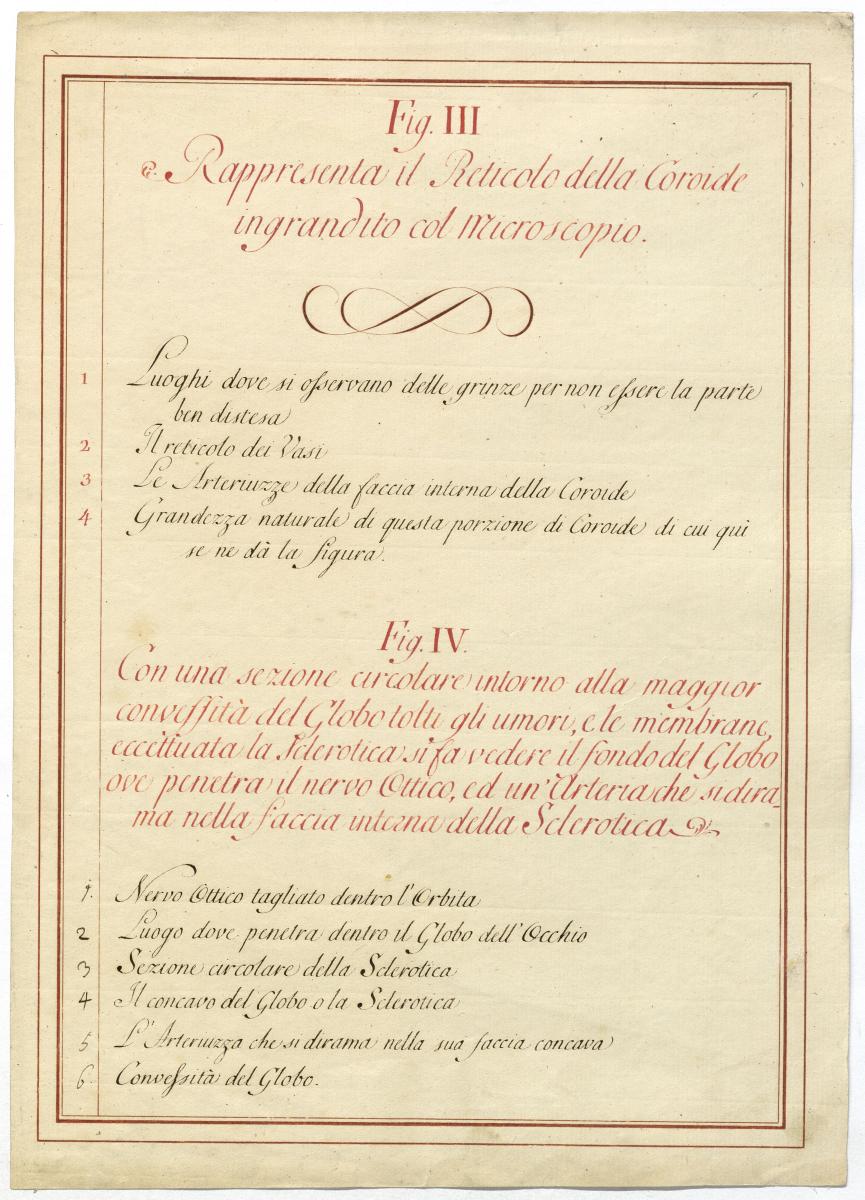 Fig. III
Rappresenta il Reticolo della Coroide
ingrandito col Microscopio.
1 Luoghi dove si oſservano delle grinze per non eſsere la parte
ben distesa
2 Il reticolo dei Vasi
3 Le Arteriuzze della faccia interna della Coroide
4 Grandezza naturale di questa porzione di Coroide di cui qui
se ne dà la figura.
Fig. IV.
Con una sezione circolare intorno alla maggior
conveſsità del Globo tolti gli umori, e le membrane,
eccettuata la Sclerotica si fa vedere il fondo del Globo
ove penetra il nervo Ottico, ed un' Arteria che si dira-
ma nella faccia interna della Sclerotica
1. Nervo Ottico tagliato dentro l'Orbita
2 Luogo dove penetra dentro il Globo dell'Occhio
3 Sezione circolare della Sclerotica
4 Il concavo del Globo o la Sclerotica
5 L'Arteriuzza che si dirama nella sua faccia concava
6. Conveſsità del Globo.